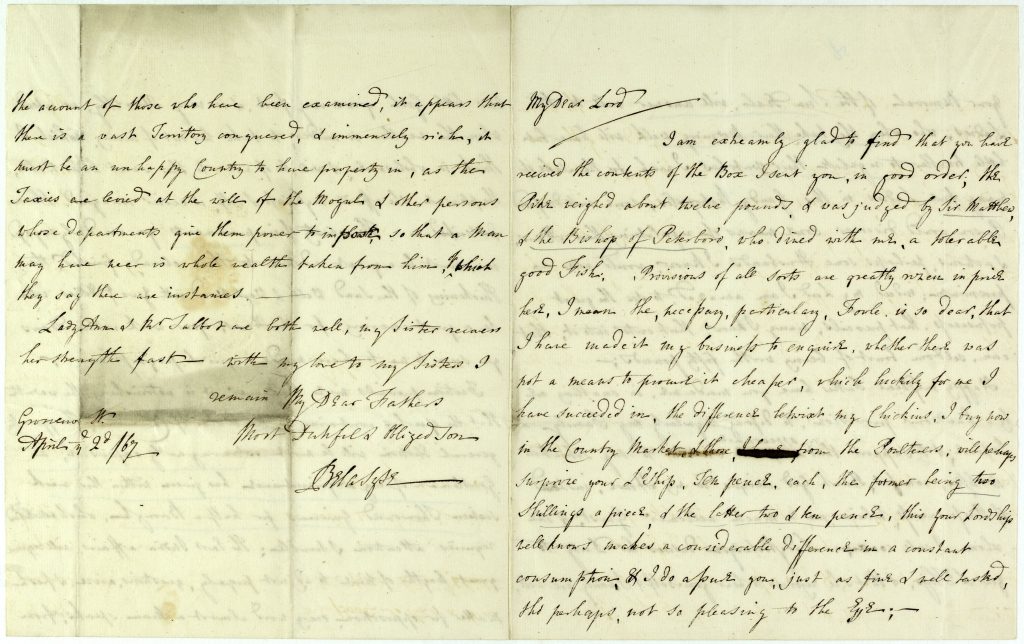 the acount of those who have been examined, it appears that
there is a vast Territory conquered, & immensely rich, it
must be an unhappy Country to have property in, as the
Taxies are levied at the will of the Moguls & other persons
whose departments give them power to so that a Man
may have near is whole wealth taken from him, of which
they say there are instances
Lady Ann & Mr Talbot are both well, my Sister recivers
her strength fast with my love to my Sisters I
remain My Dear Fathers
Most Duhful & Obliged Son
Belasyse
Grosvenr St.
April ye 2d /67
My Dear Lord
I am extreamly glad to find that you have
recived the contents of the Box I sent you, in good order, the
Pike weighed about twelve pounds, & was judged by Sir Matthew,
& the Bishop of Peterboro, who dined with me, a tolerable
good Fish. Provisions of all sorts are greatly rizen in price
here, I mean the, necessary, particulary, Fowle is so dear, that
I have made it my business to enquire, whether there was
not a means to procure it cheaper, which luckily for me I
have succeeded in, the difference betwixt my Chickins, I buy now
in the Country Market, & those, from the Poulterers, will perhaps
surprize your Ldship, Ten pence, each, the former being two
Shillings a piece, & the latter two & ten pence, this your Lordship
well knows makes a considerable difference in a constant
consumption, & I do assure you, just as fine & well tasted,
tho perhaps, not so pleasing to the Eye;—